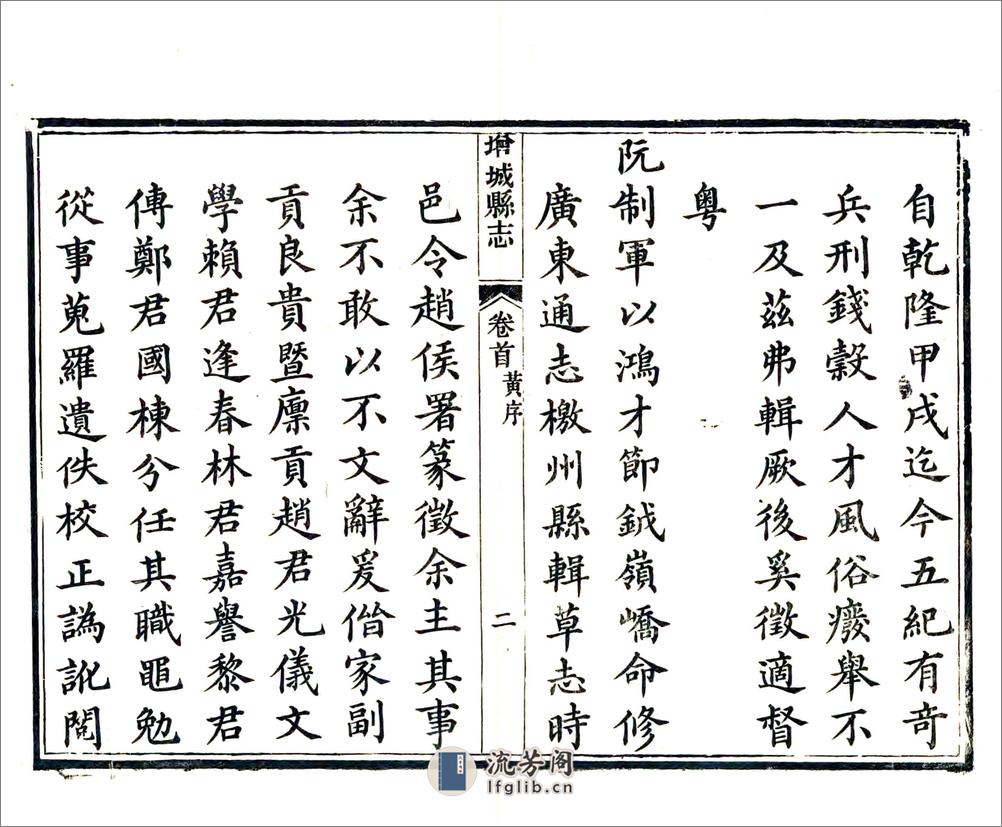 自乾隆甲戌迄今五紀有奇
兵刑錢穀人才風俗癈舉不
一及茲弗輯厥後奚徵適督
粤
阮制軍以鴻才節鉞嶺嶠命修
廣東通志檄州縣輯草志時
增城縣志
卷首
黃序
二
邑令趙侯署篆徵余主其事
余不敢以不文辭爰偕家副
貢良貴暨廪貢趙君光儀文
學賴君逢春林君嘉譽黎君
傅鄭君國棟兮任其職黽勉
從事蒐羅遺佚校正譌訛閱
流芳阁
lfglib.cn